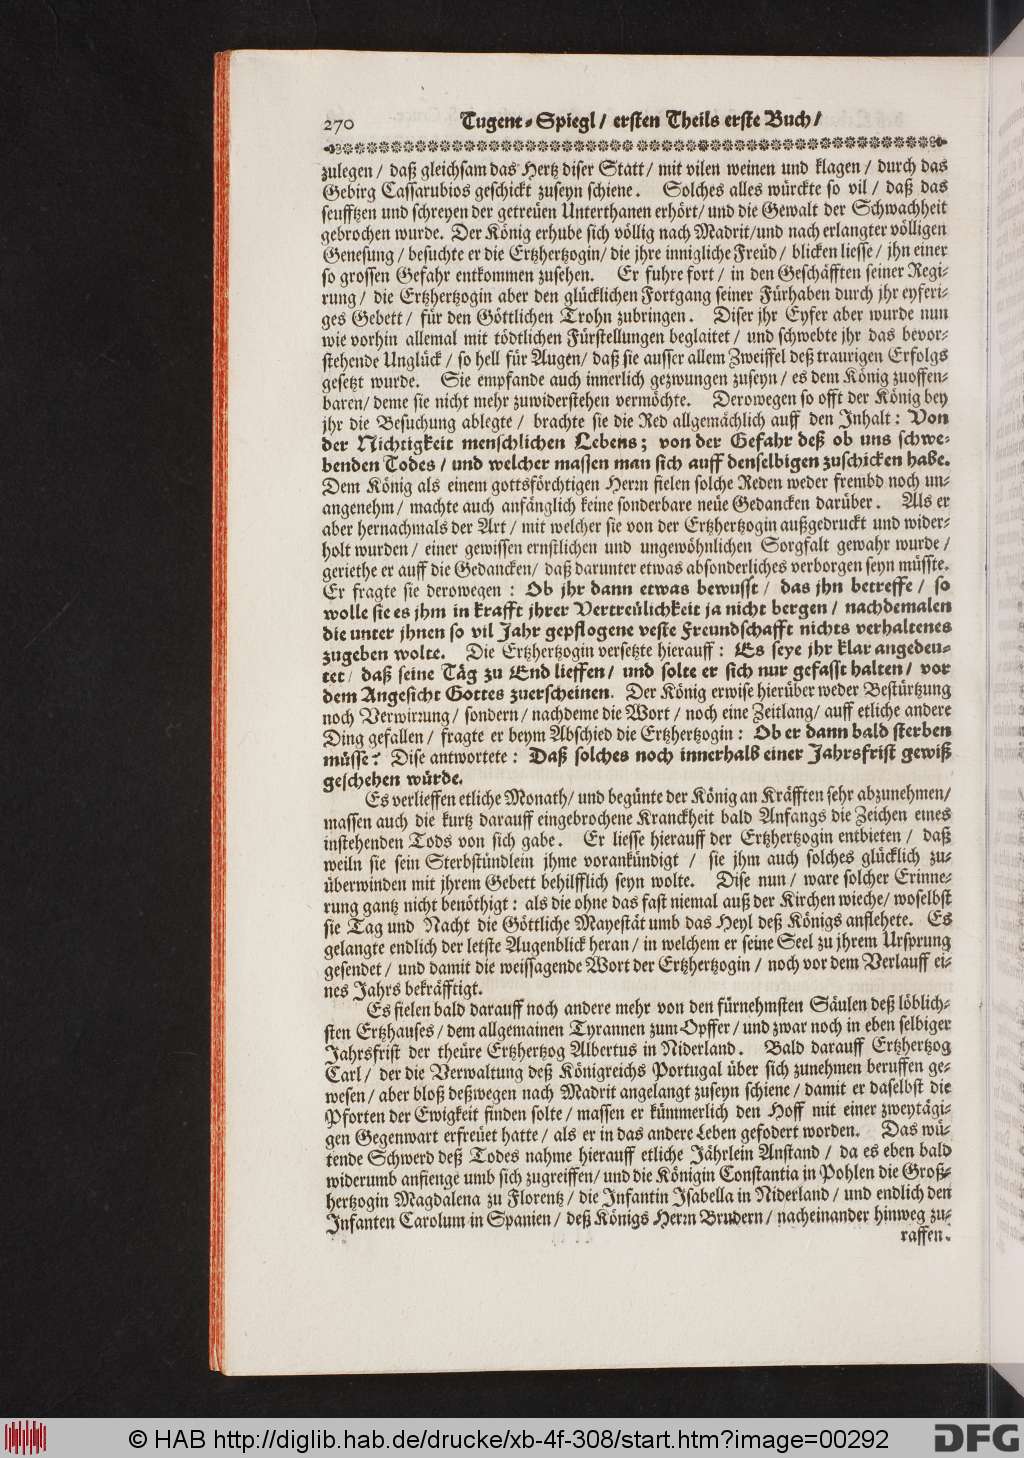 270 Tugent-Spiegl/ ersten Theils erste Buch/
zulegen/ daß gleichsam das Hertz diser Statt/ mit vilen weinen und klagen/ durch das
Gebirg Cassarubios geschickt zuseyn schiene. Solches alles würckte so vil/ daß das
seufftzen und schreyen der getreüen Unterthanen erhört/ und die Gewalt der Schwachheit
gebrochen wurde. Der König erhube sich völlig nach Madrit/ und nach erlangter völligen
Genesung/ besuchte er die Ertzhertzogin/ die jhre innigliche Freüd/ blicken liesse/ jhn einer
so grossen Gefahr entkommen zusehen. Er fuhre fort/ in den Geschäfften seiner Regi-
rung/ die Ertzhertzogin aber den glücklichen Fortgang seiner Fürhaben durch jhr eyferi-
ges Gebett/ für den Göttlichen Trohn zubringen. Diser jhr Eyfer aber wurde nun
wie vorhin allemal mit tödtlichen Fürstellungen beglaitet/ und schwebte jhr das bevor-
stehende Unglück/ so hell für Augen/ daß sie ausser allem Zweiffel deß traurigen Erfolgs
gesetzt wurde. Sie empfande auch innerlich gezwungen zuseyn/ es dem König zuoffen-
baren/ deme sie nicht mehr zuwiderstehen vermöchte. Derowegen so offt der König bey
jhr die Besuchung ablegte/ brachte sie die Red allgemächlich auff den Inhalt: Von
der Nichtigkeit menschlichen Lebens; von der Gefahr deß ob uns schwe-
benden Todes/ und welcher massen man sich auff denselbigen zuschicken habe.
Dem König als einem gottsförchtigen Herrn fielen solche Reden weder frembd noch un-
angenehm/ machte auch anfänglich keine sonderbare neüe Gedancken darüber. Als er
aber hernachmals der Art/ mit welcher sie von der Ertzhertzogin außgedruckt und wider-
holt wurden/ einer gewissen ernstlichen und ungewöhnlichen Sorgfalt gewahr wurde/
geriethe er auff die Gedancken/ daß darunter etwas absonderliches verborgen seyn müsste.
Er fragte sie derowegen: Ob jhr dann etwas bewusst/ das jhn betreffe/ so
wolle sie es jhm in krafft jhrer Vertreülichkeit ja nicht bergen/ nachdemalen
die unter jhnen so vil Jahr gepflogene veste Freundschafft nichts verhaltenes
zugeben wolte. Die Ertzhertzogin versetzte hierauff: Es seye jhr klar angedeu-
tet/ daß seine Täg zu End lieffen/ und solte er sich nur gefasst halten/ vor
dem Angesicht Gottes zuerscheinen. Der König erwise hierüber weder Bestürtzung
noch Verwirrung/ sondern/ nachdeme die Wort/ noch eine Zeitlang/ auff etliche andere
Ding gefallen/ fragte er beym Abschied die Ertzhertzogin: Ob er dann bald sterben
müsse? Dise antwortete: Daß solches noch innerhalb einer Jahrsfrist gewiß
geschehen würde.
Es verlieffen etliche Monath/ und begünte der König an Kräfften sehr abzunehmen/
massen auch die kurtz darauff eingebrochene Kranckheit bald Anfangs die Zeichen eines
instehenden Tods von sich gabe. Er liesse hierauff der Ertzhertzogin entbieten/ daß
weiln sie sein Sterbstündlein jhme vorankündigt/ sie jhm auch solches glücklich zu-
überwinden mit jhrem Gebett behilfflich seyn wolte. Dise nun/ ware solcher Erinne-
rung gantz nicht benöthigt: als die ohne das fast niemal auß der Kirchen wieche/ woselbst
sie Tag und Nacht die Göttliche Mayestät umb das Heyl deß Königs anflehete. Es
gelangte endlich der letste Augenblick heran/ in welchem er seine Seel zu jhrem Ursprung
gesendet/ und damit die weissagende Wort der Ertzhertzogin/ noch vor dem Verlauff ei-
nes Jahrs bekräfftigt.
Es fielen bald darauff noch andere mehr von den fürnehmsten Säulen deß löblich-
sten Ertzhauses/ dem allgemainen Tyrannen zum Opffer/ und zwar noch in eben selbiger
Jahrsfrist der theüre Ertzhertzog Albertus in Niderland. Bald darauff Ertzhertzog
Carl/ der die Verwaltung deß Königreichs Portugal über sich zunehmen beruffen ge-
wesen/ aber bloß deßwegen nach Madrit angelangt zuseyn schiene/ damit er daselbst die
Pforten der Ewigkeit finden solte/ massen er kümmerlich den Hoff mit einer zweytägi-
gen Gegenwart erfreüet hatte/ als er in das andere Leben gefodert worden. Das wü-
tende Schwerd deß Todes nahme hierauff etliche Jährlein Anstand/ da es eben bald
widerumb anfienge umb sich zugreiffen/ und die Königin Constantia in Pohlen die Groß-
hertzogin Magdalena zu Florentz/ die Infantin Isabella in Niderland/ und endlich den
Infanten Carolum in Spanien/ deß Königs Herrn Brudern/ nacheinander hinweg zu-
raffen.
© HAB http://diglib.hab.de/drucke/xb-4f-308/start.htm?image=00292
DFG